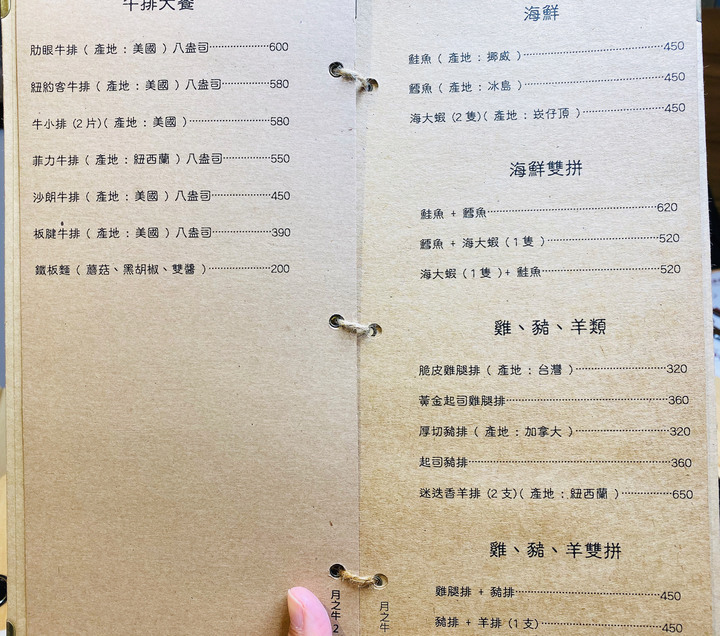 牛排大餐
肋眼牛排 ( 產地 : 美國 ) 八盎司⋯⋯⋯600
紐約客牛排 ( 產地 : 美國 ) 八盎司⋯⋯⋯580
牛小排 (2 片)( 產地 : 美國 )⋯⋯⋯580
菲力牛排 ( 產地 : 紐西蘭 ) 八盎司⋯⋯⋯550
沙朗牛排 ( 產地 : 美國 ) 八盎司⋯⋯⋯450
板腱牛排 ( 產地 : 美國 ) 八盎司⋯⋯⋯390
鐵板麵 ( 蘑菇、黑胡椒、雙醬 )⋯⋯⋯200
月之牛 2
海鮮
鮭魚 ( 產地 : 挪威 )⋯⋯⋯450
鱈魚 ( 產地 : 冰島 )⋯⋯⋯450
海大蝦 (2 隻)( 產地 : 崁仔頂 )⋯⋯⋯450
海鮮雙拼
鮭魚 + 鱈魚⋯⋯⋯620
鱈魚 + 海大蝦 ( 1 隻 )⋯⋯⋯520
海大蝦 ( 1 隻 )+ 鮭魚⋯⋯⋯520
雞、豬、羊類
脆皮雞腿排 ( 產地 : 台灣 )⋯⋯⋯320
黃金起司雞腿排⋯⋯⋯360
厚切豬排 ( 產地 : 加拿大 )⋯⋯⋯320
起司豬排⋯⋯⋯360
迷迭香羊排 (2 支)( 產地 : 紐西蘭 )⋯⋯⋯650
雞、豬、羊雙拼
雞腿排 + 豬排⋯⋯⋯450
豬排 + 羊排 (1 支)⋯⋯⋯450
月之牛